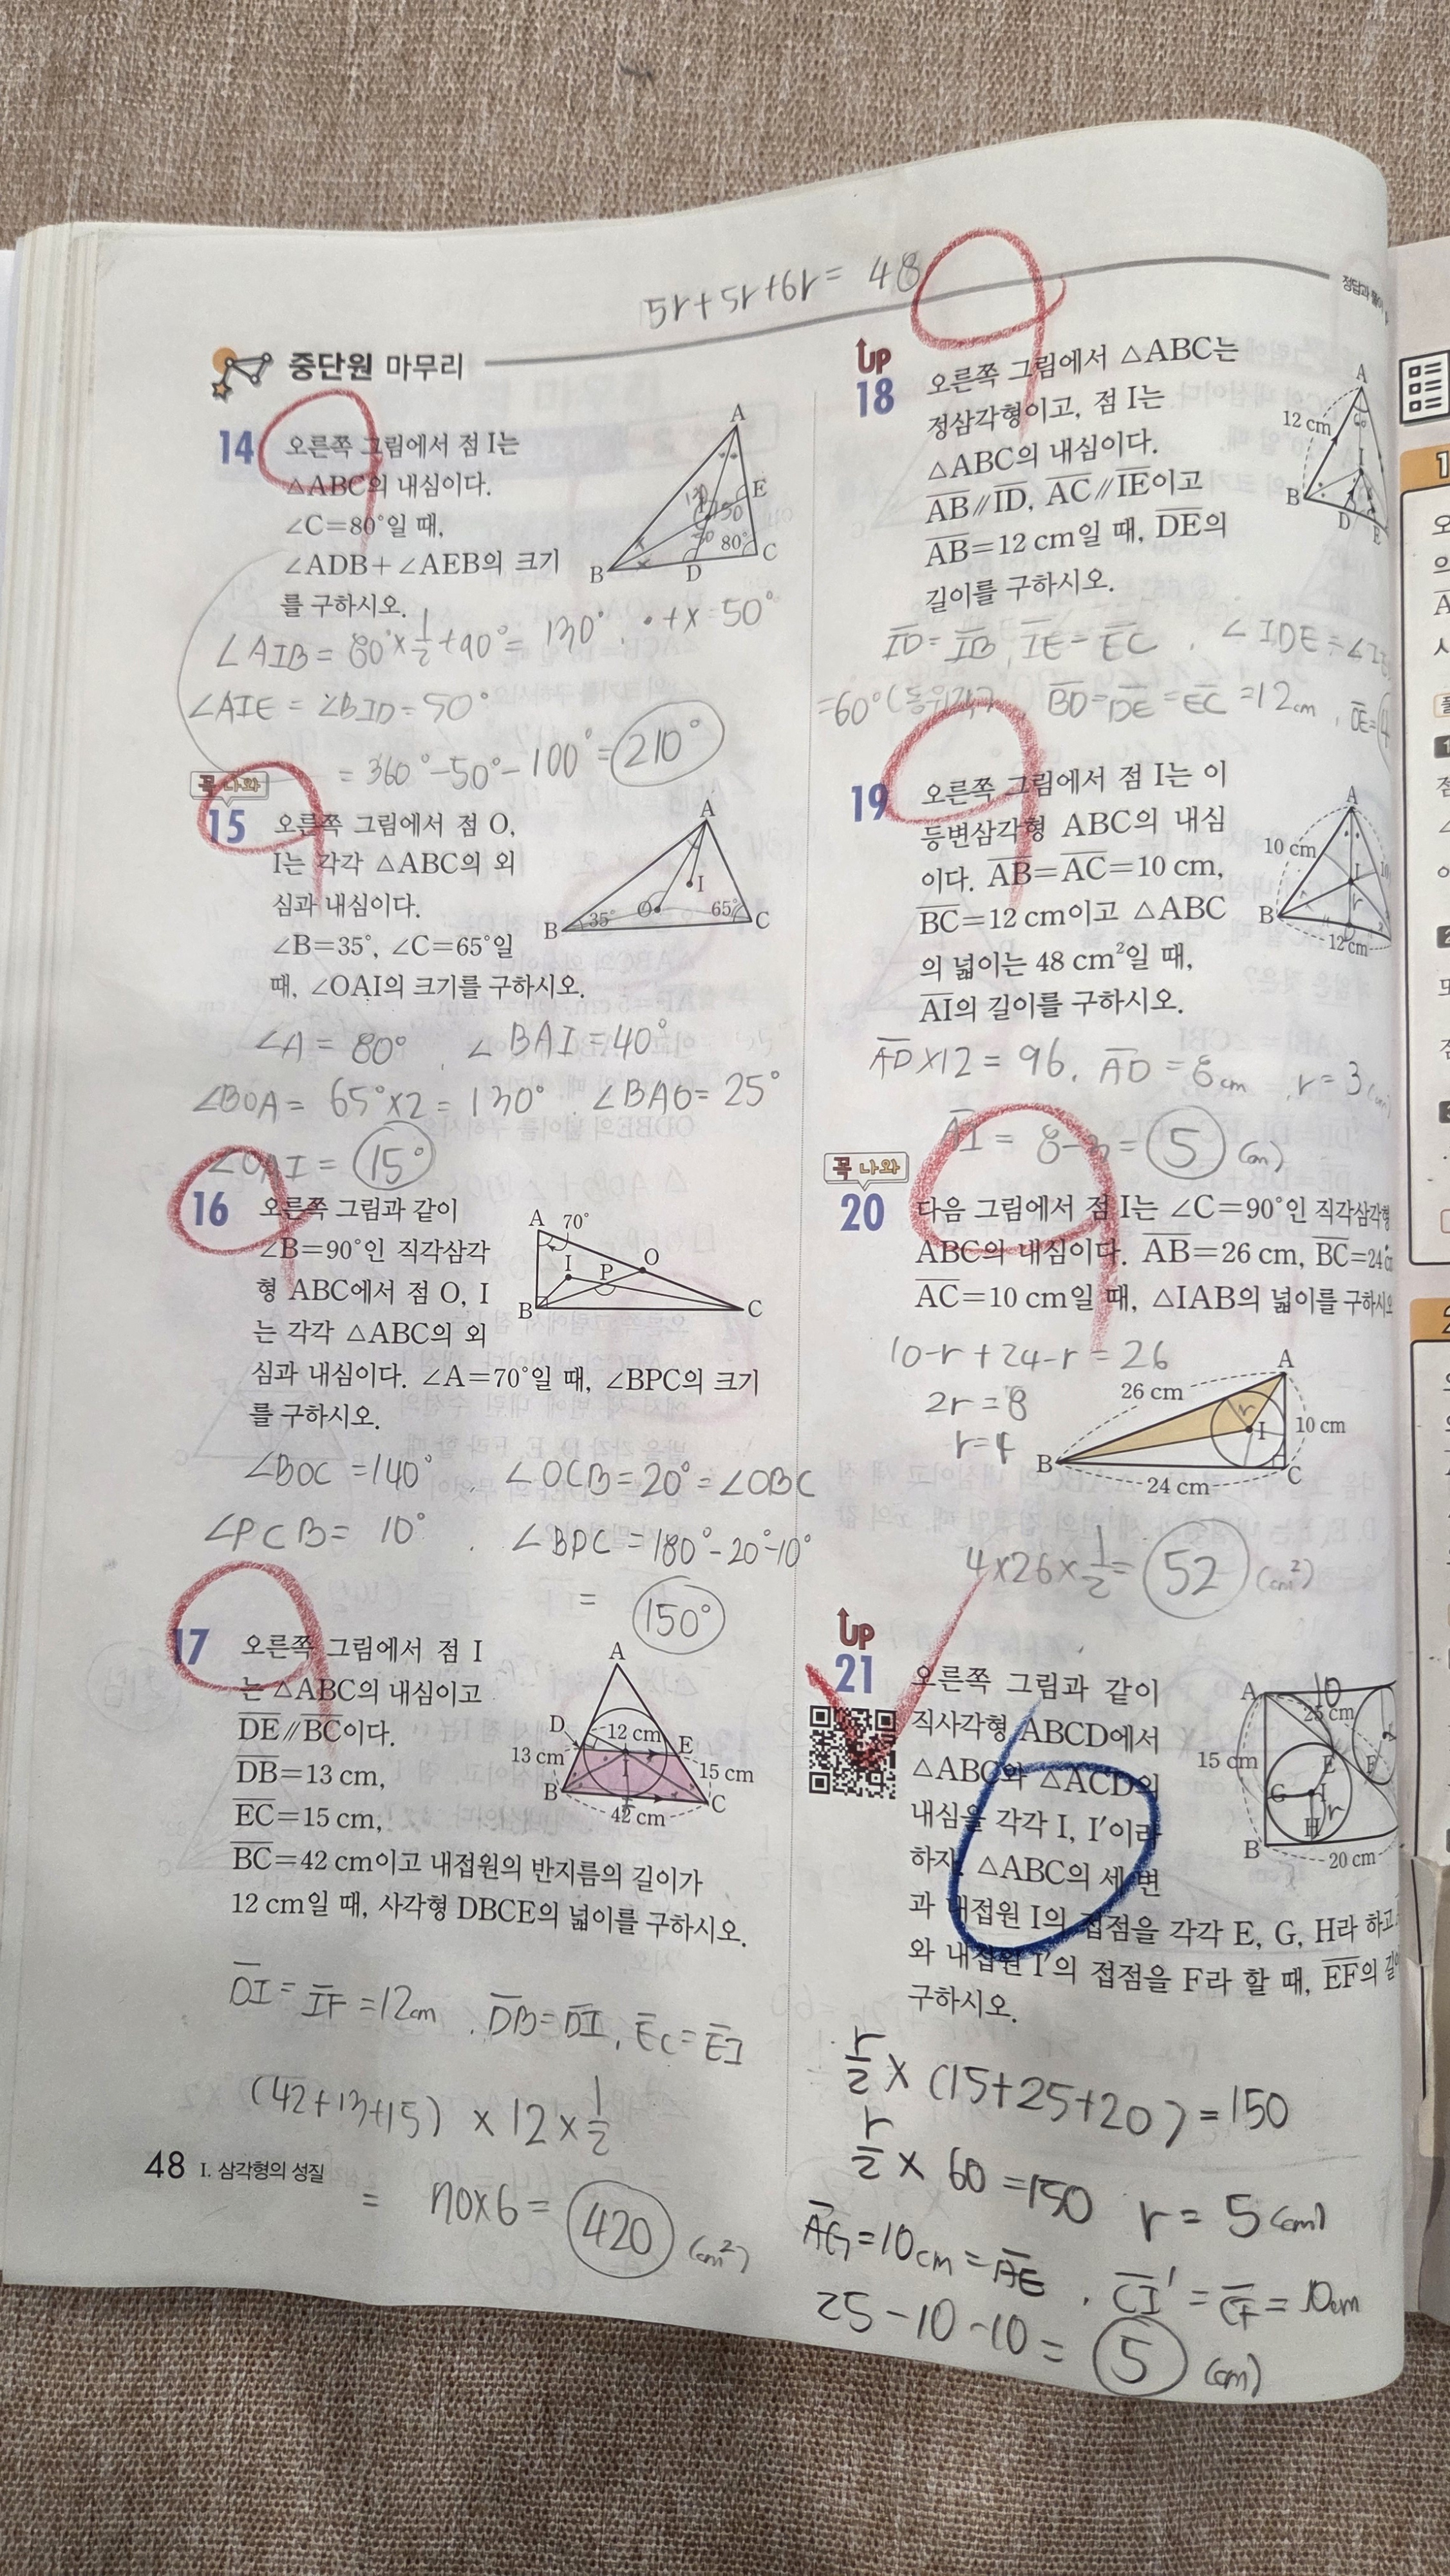 5r+5r+6r= 48
정답과 풀이
중단원 마무리
14 오른쪽 그림에서 점 I는
△ABC의 내심이다.
∠C=80°일 때,
∠ADB+∠AEB의 크기
를 구하시오.
A
E
80°
B
D
C
∠AIB = 80°×1/2+90°= 130° . •+x=50°
∠AIE = ∠BID=50°
= 360°-50°-100°= 210°
꼭 나와
15 오른쪽 그림에서 점 O,
I는 각각 △ABC의 외
심과 내심이다.
∠B=35°, ∠C=65°일
때, ∠OAI의 크기를 구하시오.
A
I
O
B 35° 65° C
∠A = 80° , ∠BAI=40°
∠BOA = 65°×2 = 130° . ∠BAO= 25°
∠OAI = 15°
16 오른쪽 그림과 같이
∠B=90°인 직각삼각
형 ABC에서 점 O, I
는 각각 △ABC의 외
심과 내심이다. ∠A=70°일 때, ∠BPC의 크기
를 구하시오.
A 70°
I P O
B C
∠BOC =140° , ∠OCB=20°=∠OBC
∠PCB= 10° . ∠BPC =180°-20°-10°
= 150°
17 오른쪽 그림에서 점 I
는 △ABC의 내심이고
DE∥BC이다.
DB=13 cm,
EC=15 cm,
BC=42 cm이고 내접원의 반지름의 길이가
12 cm일 때, 사각형 DBCE의 넓이를 구하시오.
A
D 12 cm E
13 cm I 15 cm
B C
42 cm
DI= IF =12cm . DB=DI, EC=EI
(42+13+15) ×12×1/2
= 70×6= 420 (cm²)
48 I. 삼각형의 성질
UP
18 오른쪽 그림에서 △ABC는
정삼각형이고, 점 I는
△ABC의 내심이다.
AB∥ID, AC∥IE이고
AB=12 cm일 때, DE의
길이를 구하시오.
A
12 cm
I
B
D
E
ID= IB, IE= EC . ∠IDE=
=60°(동위각) BD=DE=EC=12cm , DE=4
19 오른쪽 그림에서 점 I는 이
등변삼각형 ABC의 내심
이다. AB=AC=10 cm,
BC=12 cm이고 △ABC
의 넓이는 48 cm²일 때,
AI의 길이를 구하시오.
A
10 cm
I
B
12 cm
AD×12= 96. AD =8cm , r=3(cm)
AI = 8-3= 5 (cm)
꼭 나와
20 다음 그림에서 점 I는 ∠C=90°인 직각삼각형
ABC의 내심이다. AB=26 cm, BC=24 c
AC=10 cm일 때, △IAB의 넓이를 구하시오
10-r+24-r=26
2r=8
r=4
A
26 cm
r
I 10 cm
B
24 cm C
4×26×1/2= 52 (cm²)
UP
21 오른쪽 그림과 같이
직사각형 ABCD에서
△ABC와 △ACD의
내심을 각각 I, I'이라
하자. △ABC의 세 변
과 내접원 I의 접점을 각각 E, G, H라 하고
와 내접원 I'의 접점을 F라 할 때, EF의 길
구하시오.
A 10
25 cm
15 cm
E F
G I r
H
B
20 cm
r/2 × (15+25+20)=150
r/2 × 60 =150 r= 5(cm)
AG=10cm=AE , CI'=CF=10cm
25-10-10= 5 (cm)